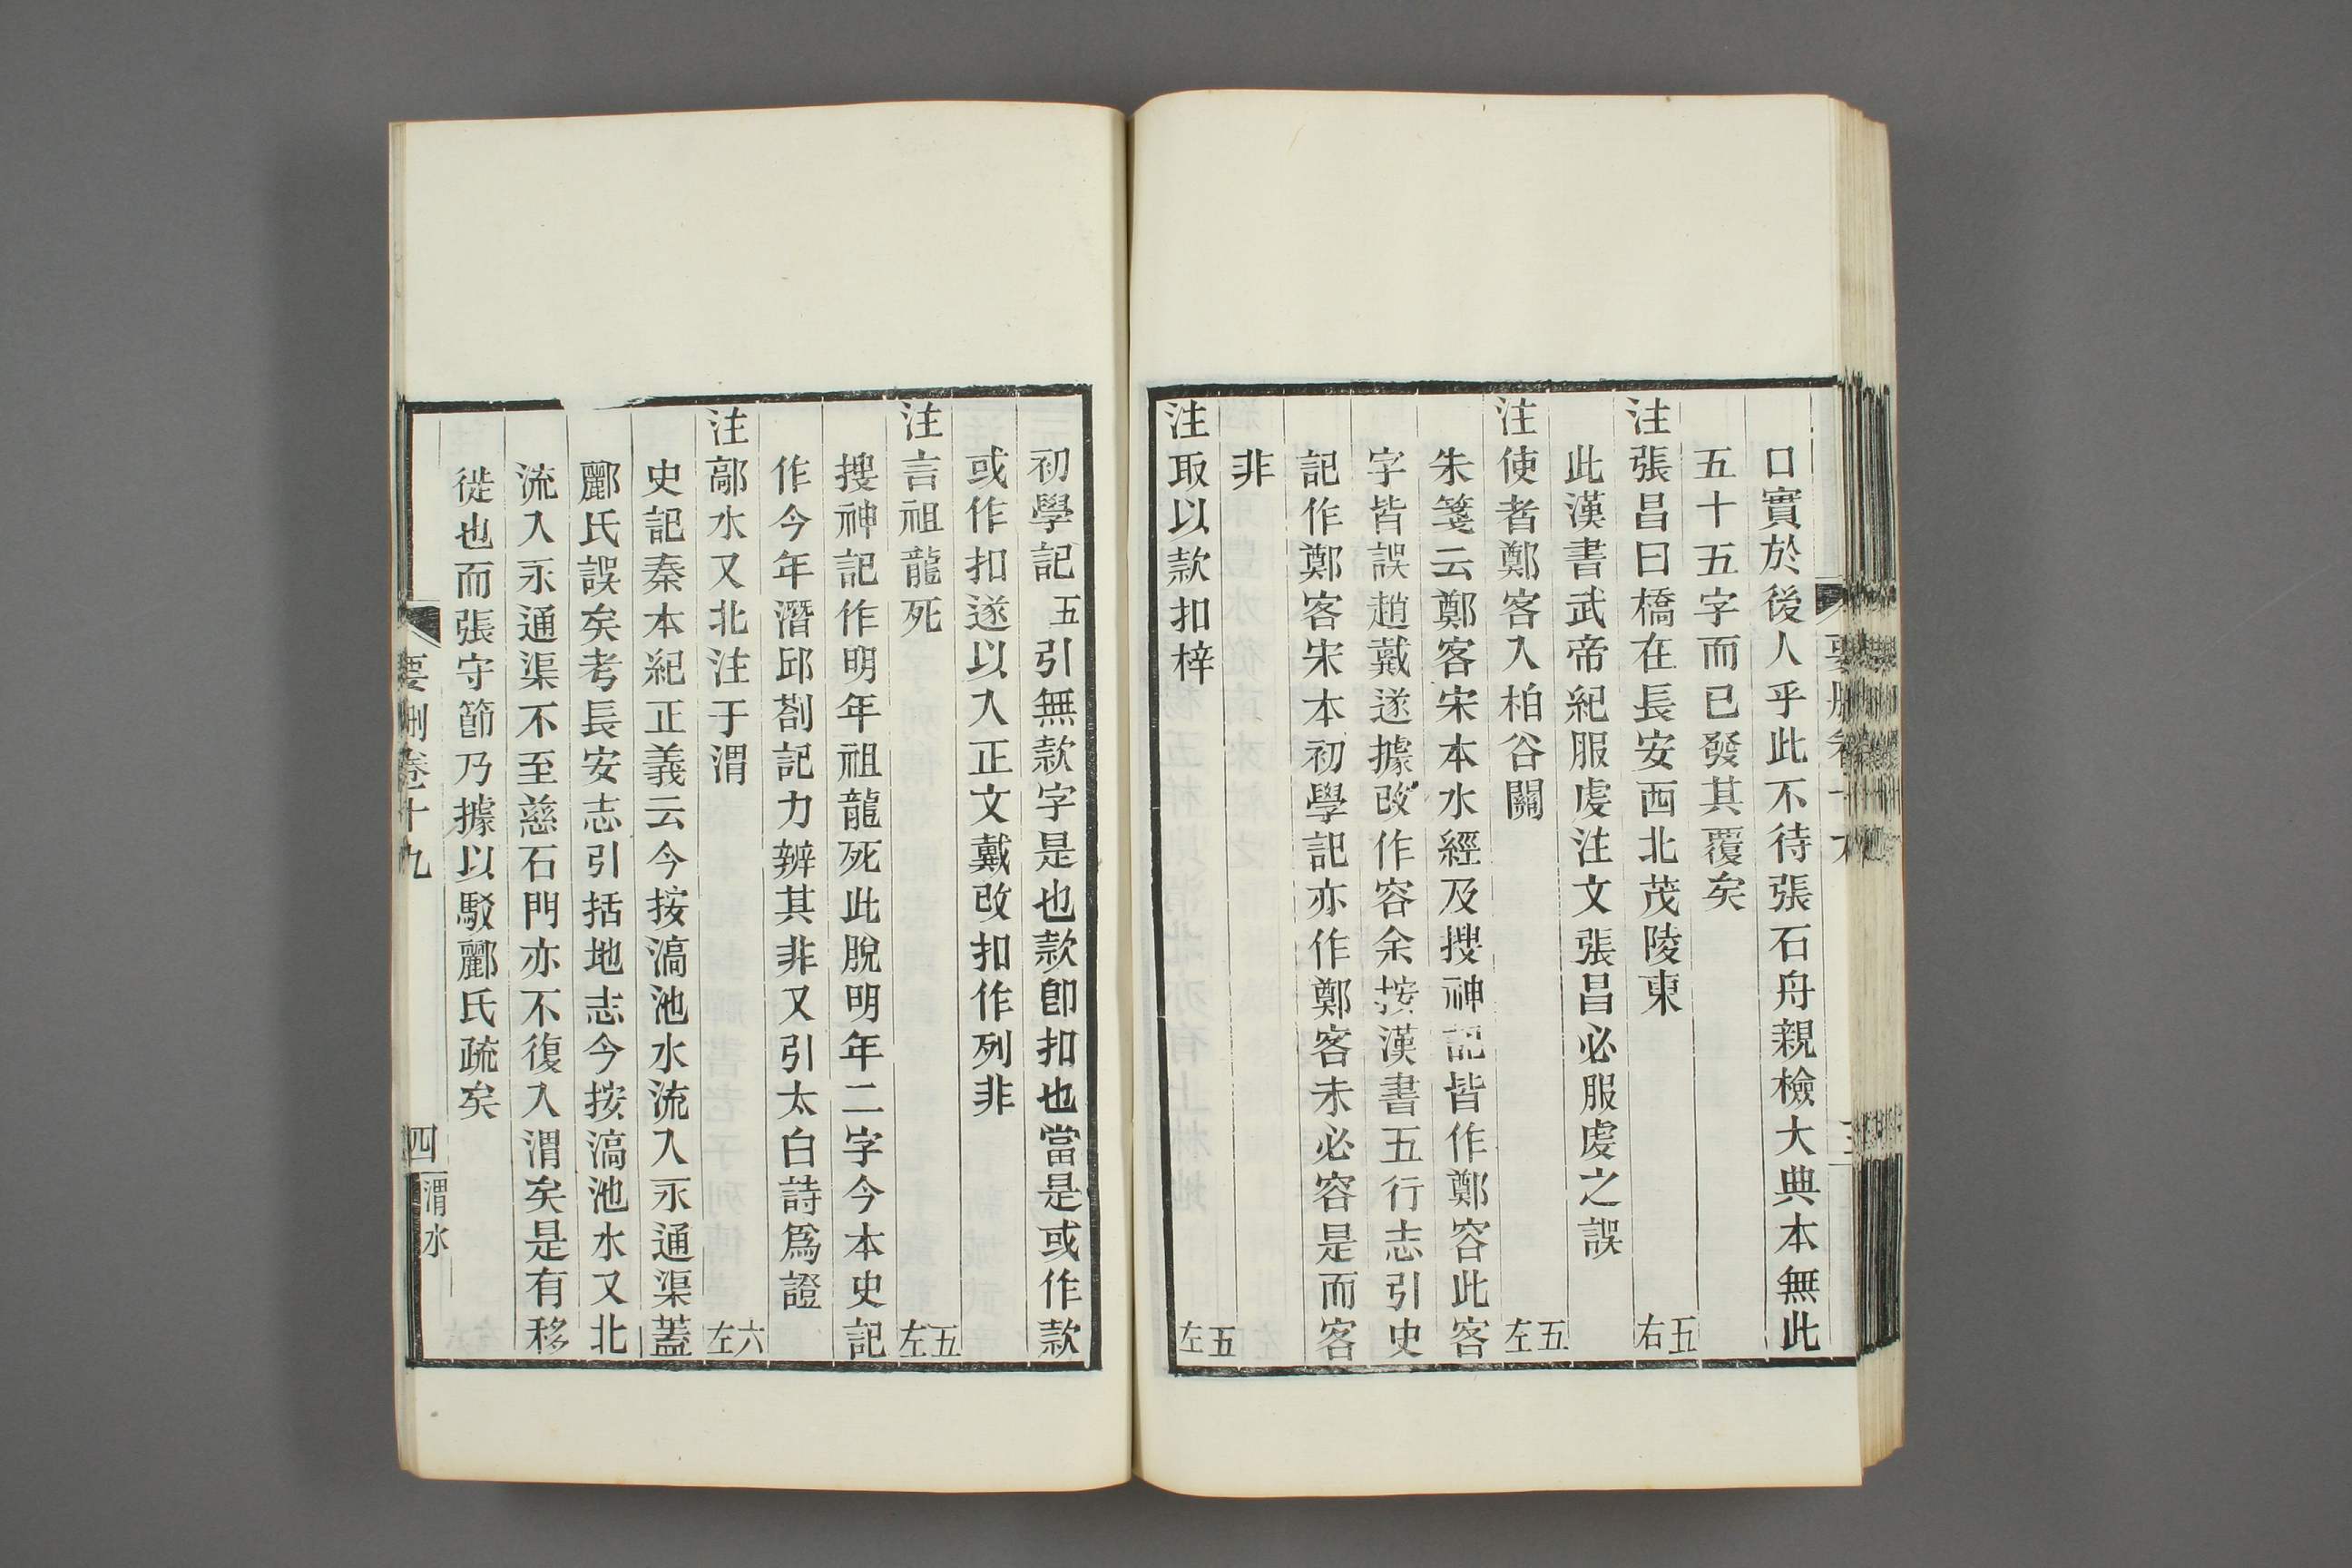 口實於後人乎此不待張石舟親檢大典本無此
五十五字而已發其覆矣
注張昌曰橋在長安西北茂陵東 五右
此漢書武帝紀服虔注文張昌必服虔之誤
注使者鄭客入柏谷關 五左
朱箋云鄭客宋本水經及搜神記皆作鄭容此客
字皆誤趙戴遂據改作容余按漢書五行志引史
記作鄭客宋本初學記亦作鄭客未必容是而客
非
注取以款扣梓 五左
初學記五引無款字是也款卽扣也當是或作款
或作扣遂以入正文戴改扣作列非
注言祖龍死 五左
搜神記作明年祖龍死此脫明年二字今本史記
作今年潛邱劄記力辨其非又引太白詩爲證
注鄗水又北注于渭 六左
史記秦本紀正義云今按滈池水流入永通渠蓋
酈氏誤矣考長安志引括地志今按滈池水又北
流入永通渠不至慈石門亦不復入渭矣是有移
徙也而張守節乃據以駁酈氏疏矣
要刪卷十九 四 渭水